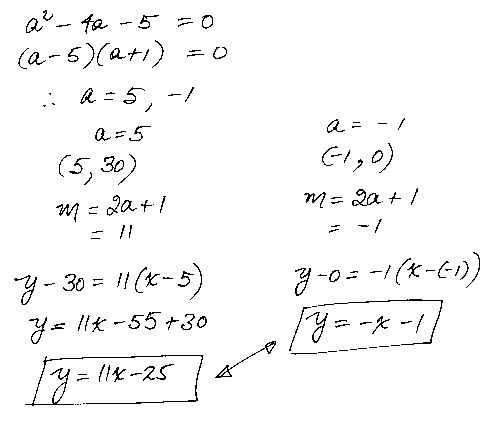 a² - 4a - 5 = 0
(a-5)(a+1) = 0
∴ a = 5, -1
a = 5
(5, 30)
m = 2a + 1
= 11
y - 30 = 11(x-5)
y = 11x - 55 + 30
y = 11x - 25
a = -1
(-1, 0)
m = 2a + 1
= -1
y - 0 = -1(x-(-1))
y = -x - 1